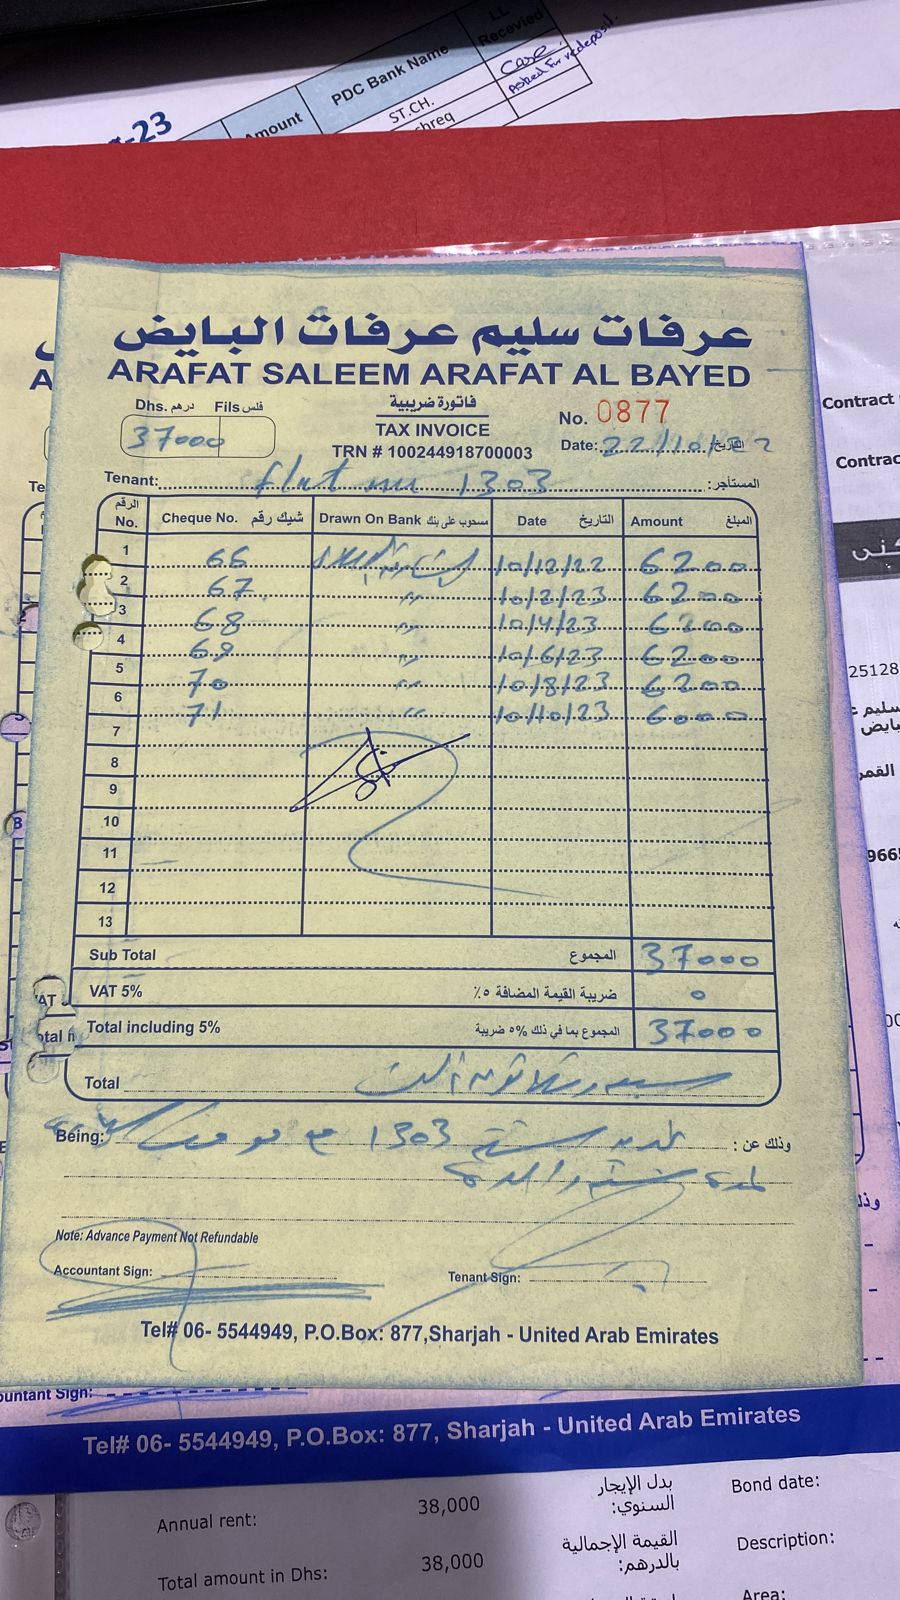 LL
Recevied
PDC Bank Name
Amount
Case
Asked for redeposit.
ST.CH.
hreq
-23
عرفات سليم عرفات البايض
ARAFAT SALEEM ARAFAT AL BAYED
Dhs. درهم Fils فلس
37000
فاتورة ضريبية
TAX INVOICE
TRN # 100244918700003
No. 0877
Date: 22/10/22 التاريخ:
Tenant: flat no 1303 المستأجر:
الرقم No. Cheque No. شيك رقم Drawn On Bank مسحوب على بنك Date التاريخ Amount المبلغ
1 66 10/12/22 6200
2 67 " 10/2/23 6200
3 68 " 10/4/23 6200
4 69 " 10/6/23 6200
5 70 " 10/8/23 6200
6 71 " 10/10/23 6000
7
8
9
10
11
12
13
Sub Total المجموع 37000
VAT 5% ضريبة القيمة المضافة ٥٪ 0
Total including 5% المجموع بما في ذلك 5% ضريبة 37000
Total
Being: 1303 وذلك عن :
Note: Advance Payment Not Refundable
Accountant Sign: Tenant Sign:
Tel# 06- 5544949, P.O.Box: 877,Sharjah - United Arab Emirates
ountant Sign:
Tel# 06- 5544949, P.O.Box: 877, Sharjah - United Arab Emirates
Contract
Contrac
كنى
25128
سليم
بايض
القمر
966
Annual rent: 38,000 بدل الإيجار السنوي: Bond date:
Total amount in Dhs: 38,000 القيمة الإجمالية بالدرهم: Description:
Area: